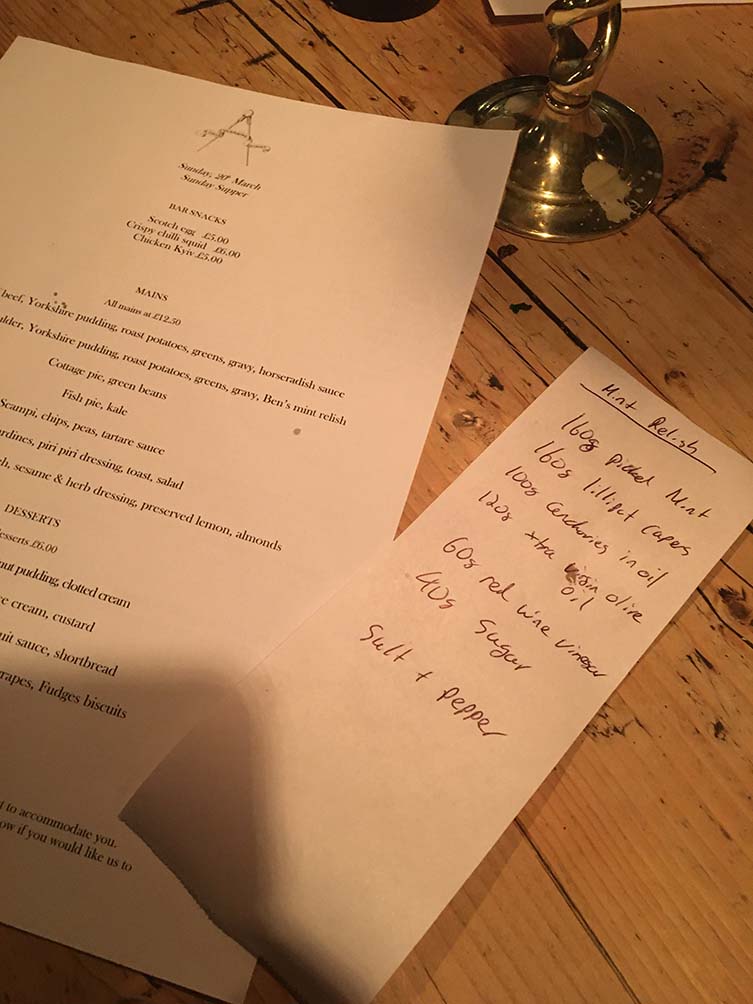 Sunday, 20th March
Sunday Supper
BAR SNACKS
Scotch egg £5.00
Crispy chilli squid £6.00
Chicken Kyiv £5.00
MAINS
All mains at £12.50
beef, Yorkshire pudding, roast potatoes, greens, gravy, horseradish sauce
ulder, Yorkshire pudding, roast potatoes, greens, gravy, Ben's mint relish
Cottage pie, green beans
Fish pie, kale
Scampi, chips, peas, tartare sauce
ardines, piri piri dressing, toast, salad
h, sesame & herb dressing, preserved lemon, almonds
DESSERTS
esserts £6.00
nut pudding, clotted cream
e cream, custard
uit sauce, shortbread
rapes, Fudges biscuits
t to accommodate you.
ow if you would like us to
Mint Relish
160g picked Mint
160g lilliput capers
100g Anchovies in oil
120g xtra virgin olive
oil
60g red wine vinegar
40g Sugar
Salt + pepper